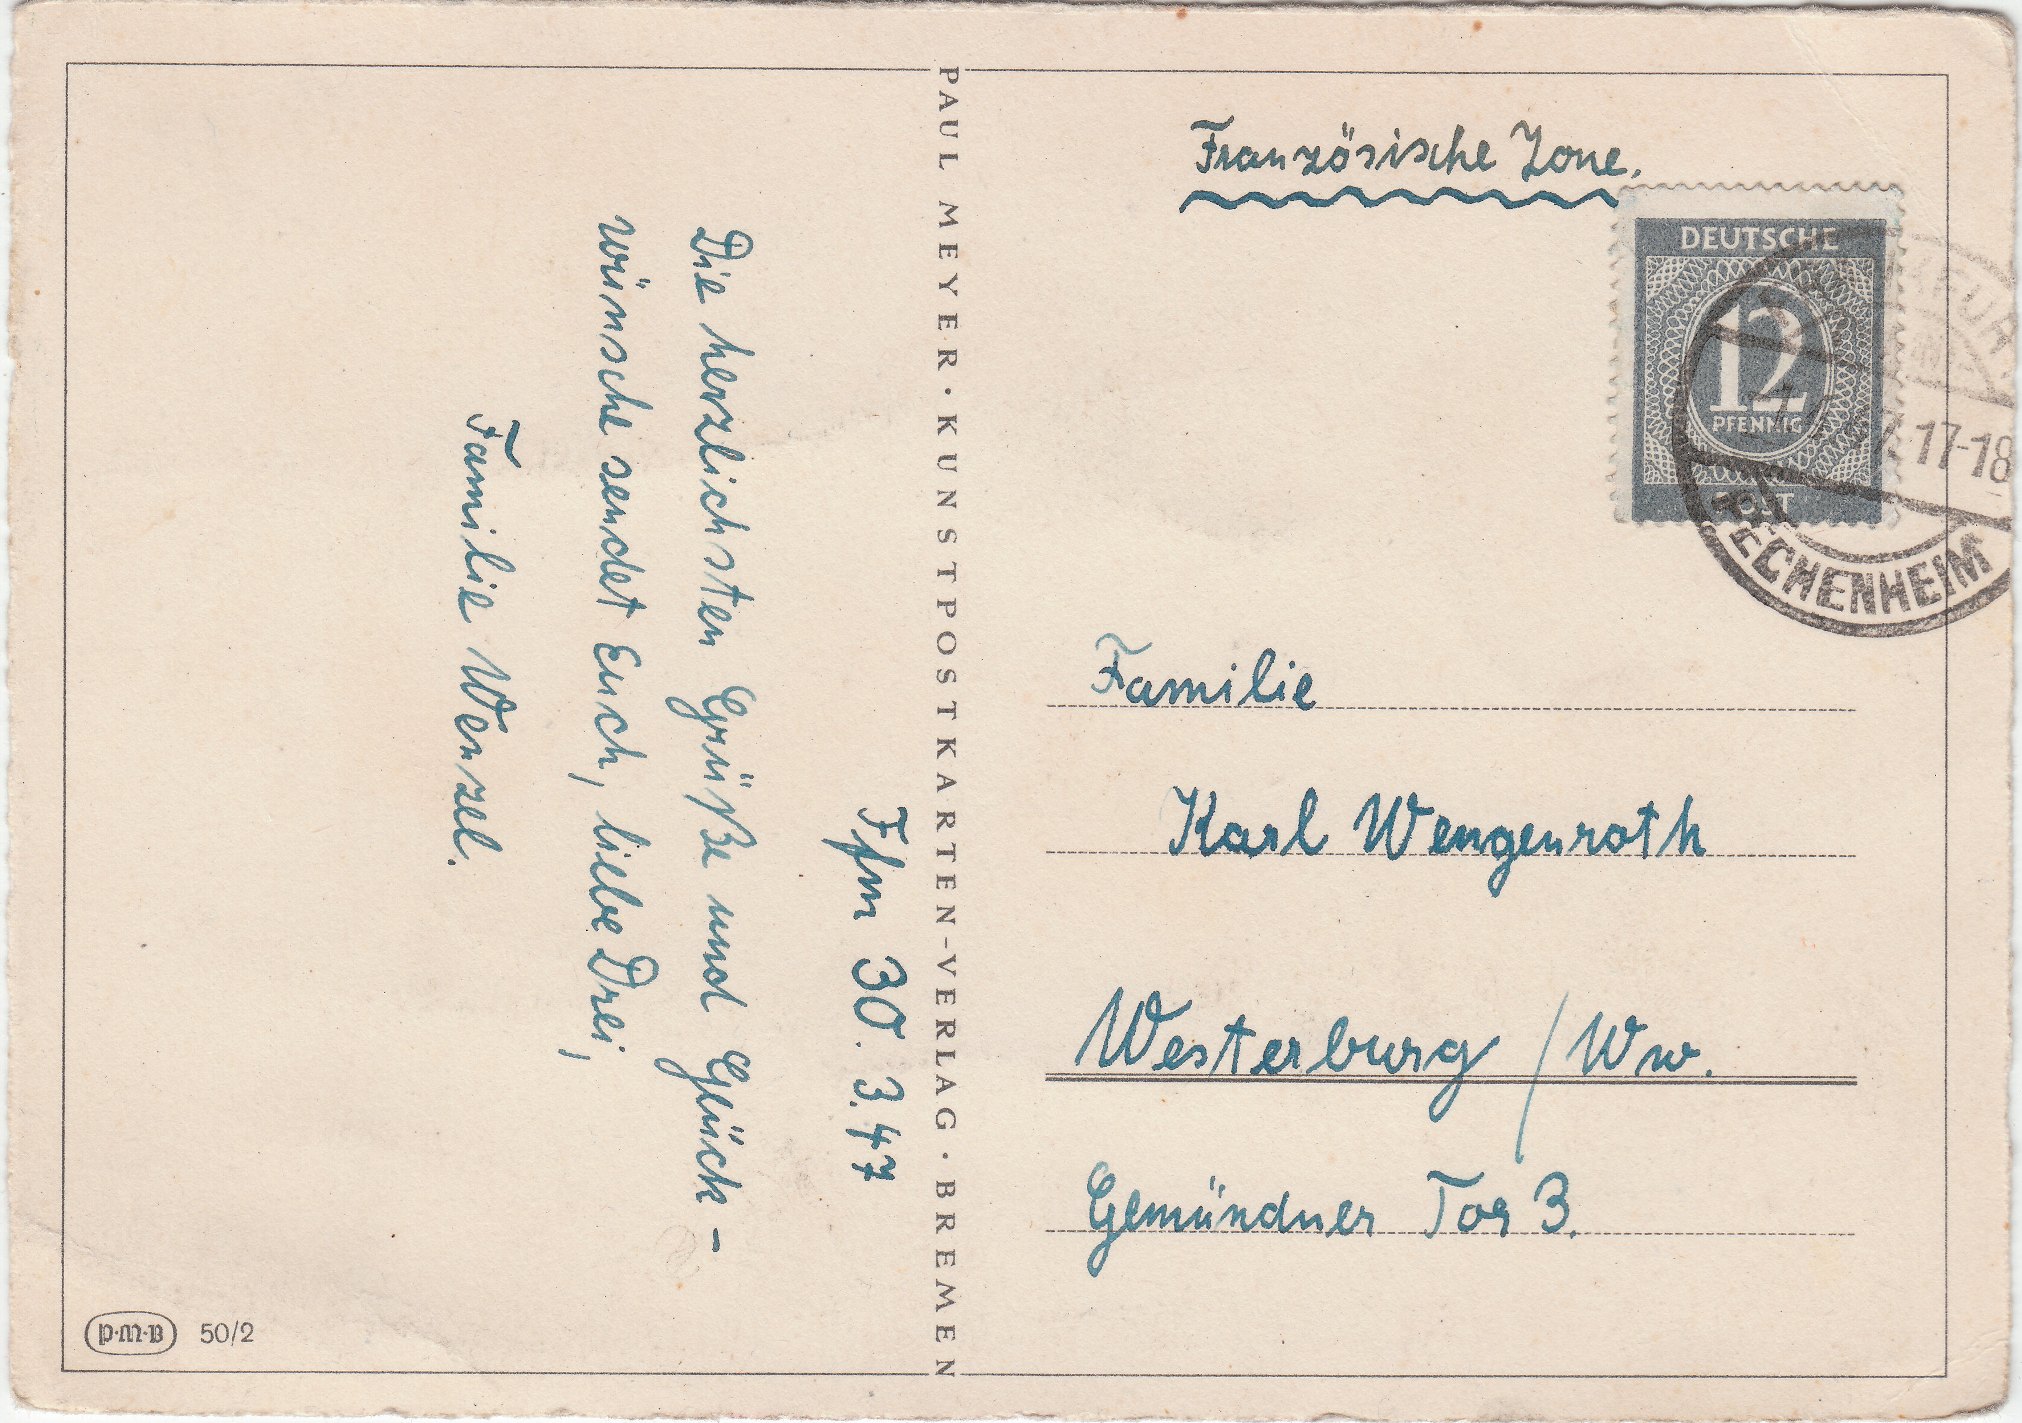 Ffm 30. 3.47
Die herzlichsten Grüße und Glück-
wünsche sendet Euch, liebe Drei,
Familie Wenzel.
PAUL MEYER · KUNSTPOSTKARTEN-VERLAG · BREMEN
p·m·B 50/2
Französische Zone.
DEUTSCHE
12
PFENNIG
POST
17-18
FECHENHEIM
Familie
Karl Wengenroth
Westerburg / Ww.
Gemündner Tor 3.